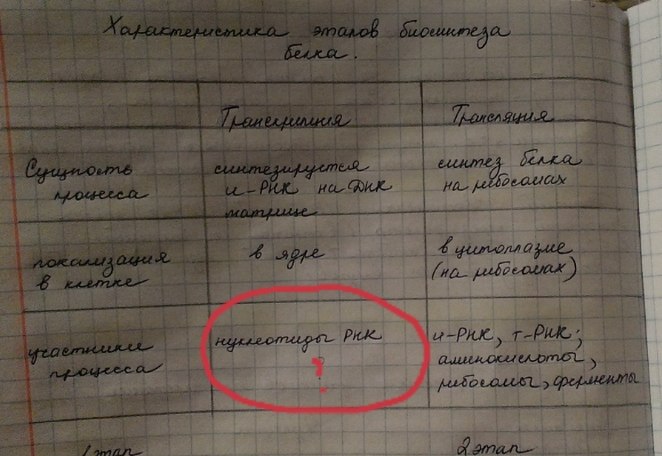 Характеристика этапов биосинтеза
белка.
Транскрипция
Трансляция
Сущность
процесса
синтезируется
и-РНК на ДНК
матрице
синтез белка
на рибосомах
локализация
в клетке
в ядре
в цитоплазме
(на рибосомах)
участники
процесса
нуклеотиды РНК
?
и-РНК, т-РНК;
аминокислоты,
рибосомы, ферменты
1 этап
2 этап